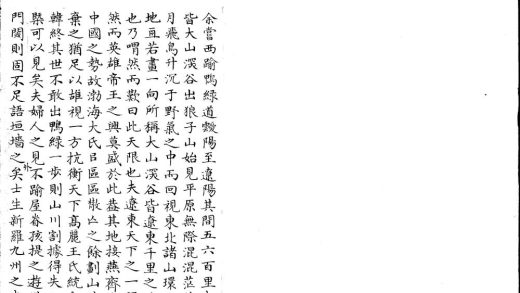 余嘗西踰鴨綠道靉陽至遼陽其間五六百里
皆大山深谷出狼子山始見平原無際混混茫
月飛鳥升沉于野氣之中而回視東北諸山環
地亘若畫一向所稱大山深谷皆遼東千里之
也乃喟然而歎曰此天限也夫遼東天下之一
然而英雄帝王之興莫盛於此盖其地接燕齊
中國之勢故渤海大氏以區區散亡之餘劃山
棄之猶足以雄視一方抗衡天下高麗王氏統
韓終其世不敢出鴨綠一步則山川割據得失
槩可以見矣夫婦人之見不踰屋脊孩提之遊
門閾則固不足語垣墻之外矣士生新羅九州之